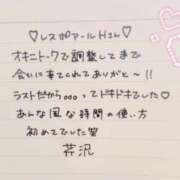 ♡レスポアールHさん♡
オキニトークで調整してまで
会いに来てくれてありがと〜!!
ラストだから。。。ってドキドキでした♡
あんな風な時間の使い方
初めてでした笑
芹沢